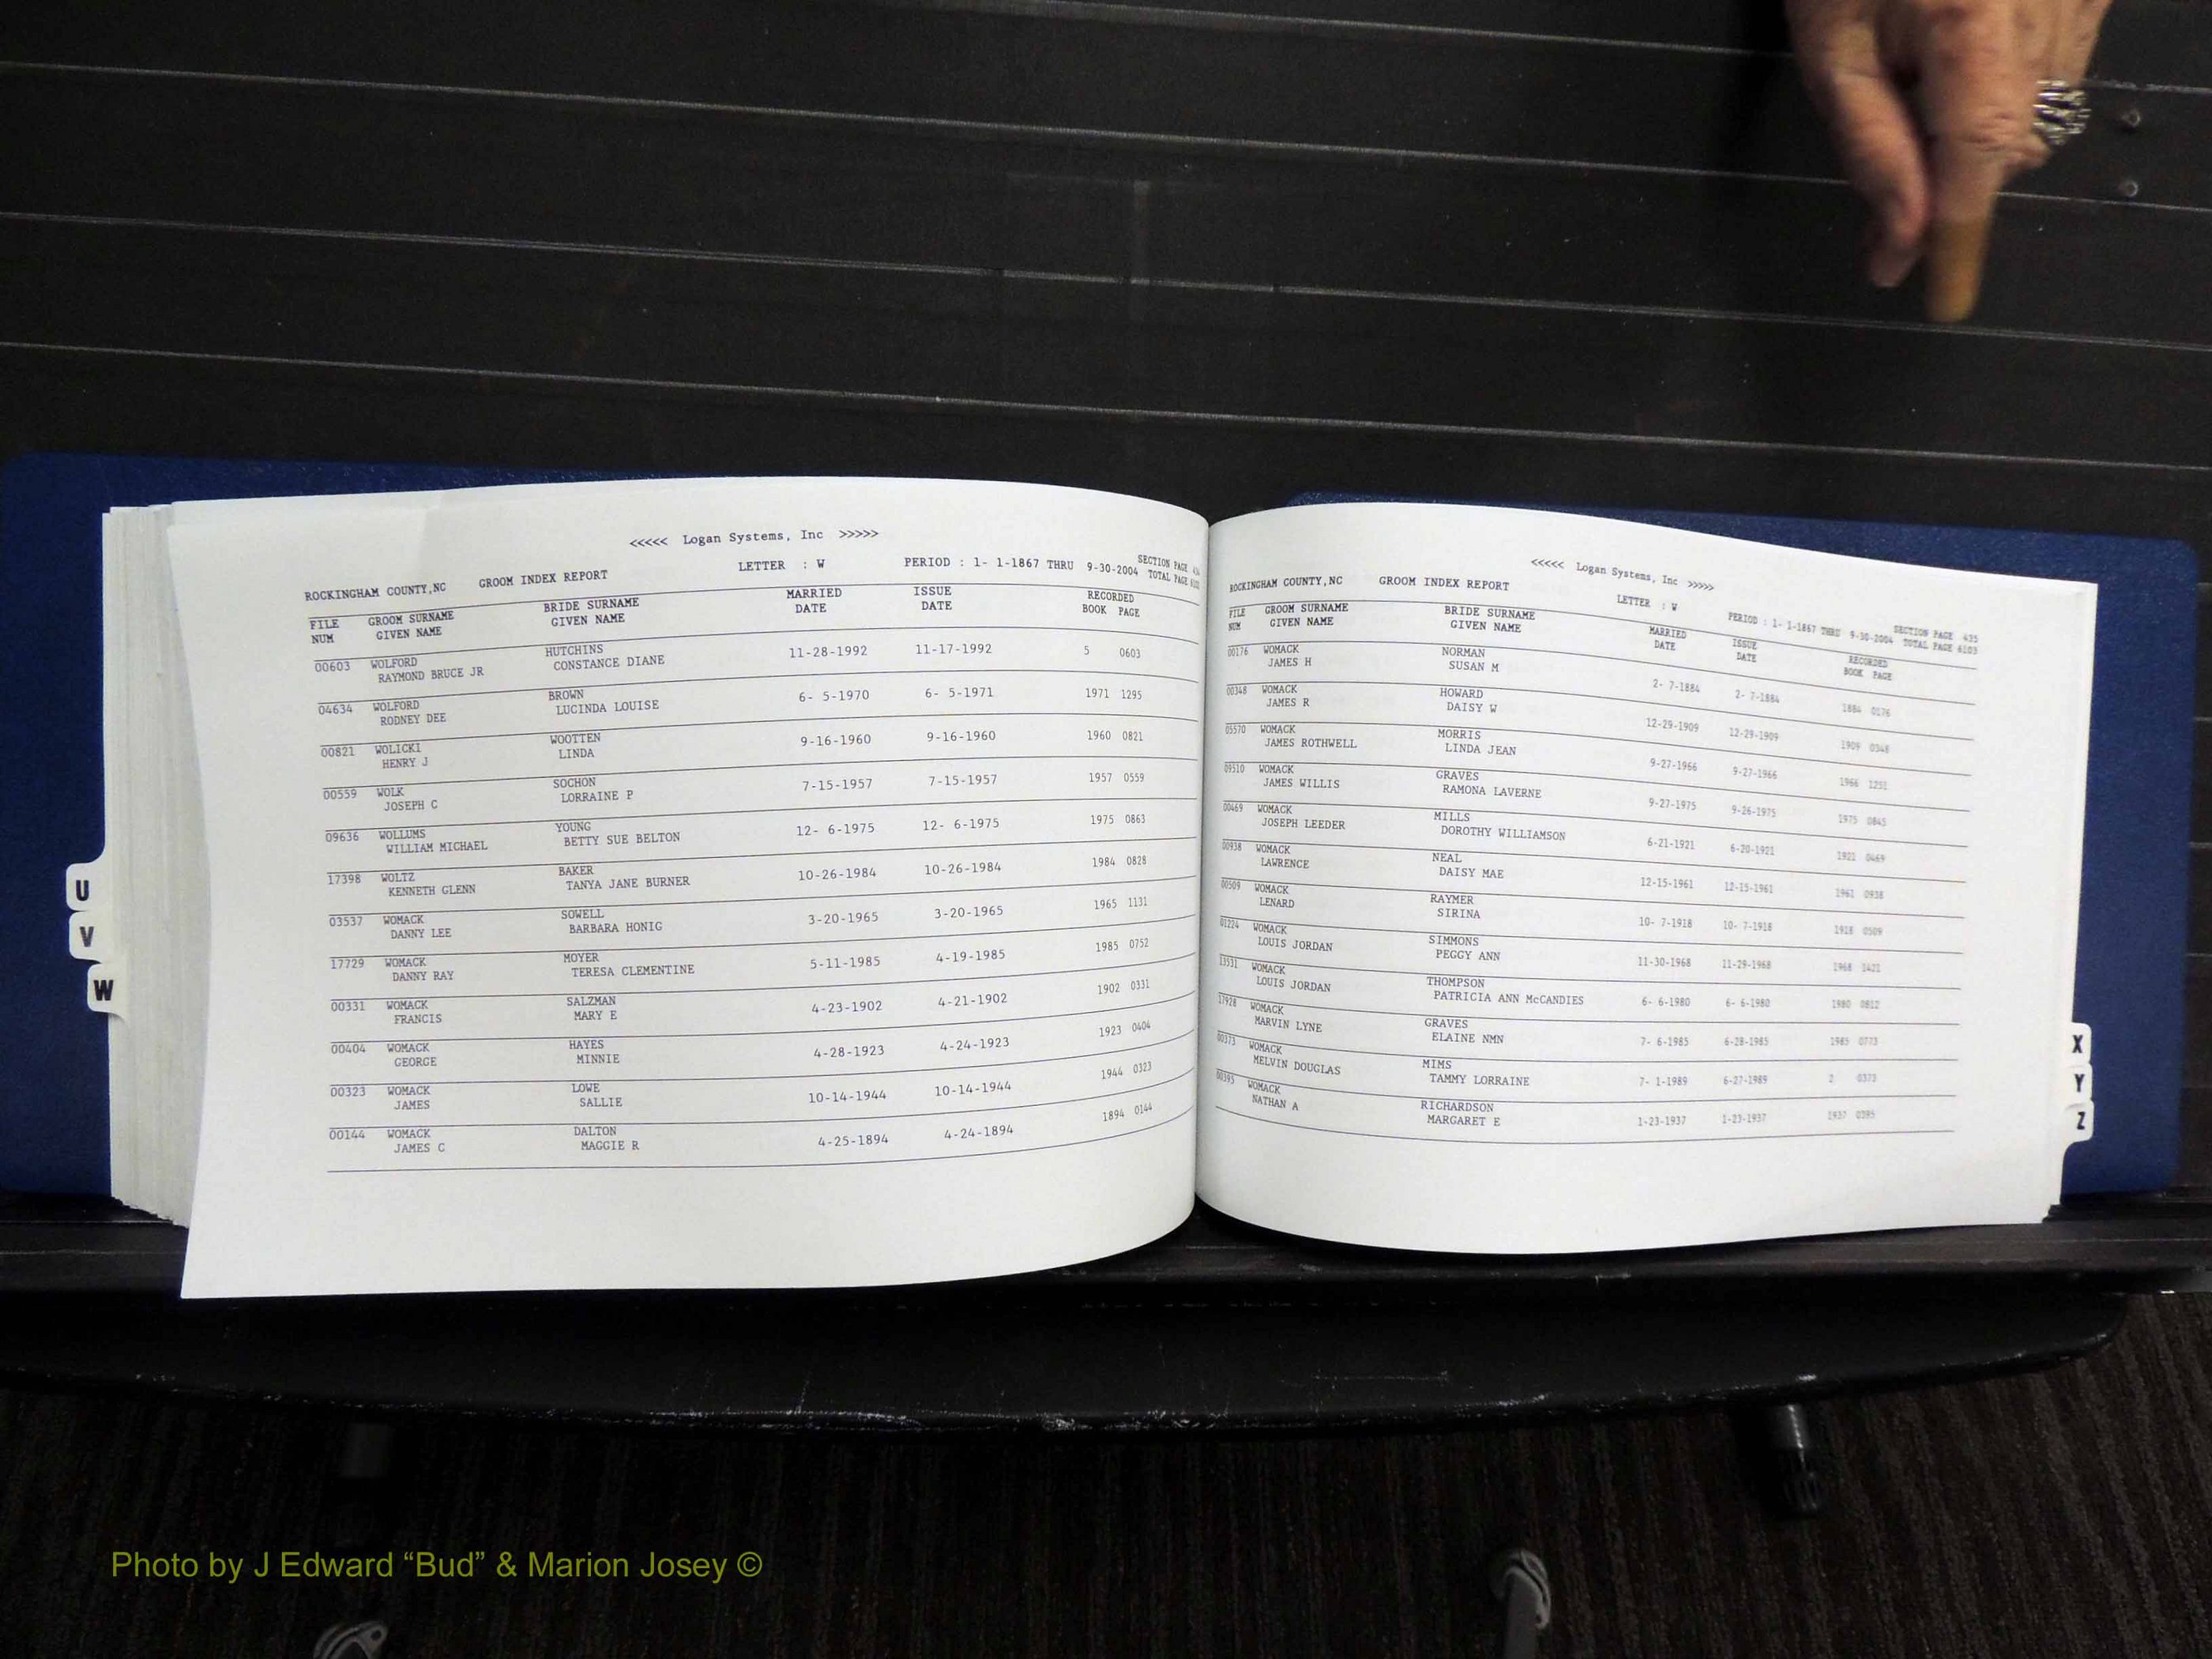 <<<<< Logan Systems, Inc >>>>>
ROCKINGHAM COUNTY,NC GROOM INDEX REPORT LETTER : W PERIOD : 1- 1-1867 THRU 9-30-2004 SECTION PAGE
TOTAL PAGE
FILE GROOM SURNAME BRIDE SURNAME MARRIED ISSUE RECORDED
NUM GIVEN NAME GIVEN NAME DATE DATE BOOK PAGE
00603 WOLFORD HUTCHINS 11-28-1992 11-17-1992 5 0603
RAYMOND BRUCE JR CONSTANCE DIANE
04634 WOLFORD BROWN 6- 5-1970 6- 5-1971 1971 1295
RODNEY DEE LUCINDA LOUISE
00821 WOLICKI WOOTTEN 9-16-1960 9-16-1960 1960 0821
HENRY J LINDA
00559 WOLK SOCHON 7-15-1957 7-15-1957 1957 0559
JOSEPH C LORRAINE P
09636 WOLLUMS YOUNG 12- 6-1975 12- 6-1975 1975 0863
WILLIAM MICHAEL BETTY SUE BELTON
17398 WOLTZ BAKER 10-26-1984 10-26-1984 1984 0828
KENNETH GLENN TANYA JANE BURNER
03537 WOMACK SOWELL 3-20-1965 3-20-1965 1965 1131
DANNY LEE BARBARA HONIG
17729 WOMACK MOYER 5-11-1985 4-19-1985 1985 0752
DANNY RAY TERESA CLEMENTINE
00331 WOMACK SALZMAN 4-23-1902 4-21-1902 1902 0331
FRANCIS MARY E
00404 WOMACK HAYES 4-28-1923 4-24-1923 1923 0404
GEORGE MINNIE
00323 WOMACK LOWE 10-14-1944 10-14-1944 1944 0323
JAMES SALLIE
00144 WOMACK DALTON 4-25-1894 4-24-1894 1894 0144
JAMES C MAGGIE R
U
V
W
<<<<< Logan Systems, Inc >>>>>
ROCKINGHAM COUNTY,NC GROOM INDEX REPORT LETTER : W PERIOD : 1- 1-1867 THRU 9-30-2004 SECTION PAGE 435
TOTAL PAGE 6103
FILE GROOM SURNAME BRIDE SURNAME MARRIED ISSUE RECORDED
NUM GIVEN NAME GIVEN NAME DATE DATE BOOK PAGE
00176 WOMACK NORMAN 2- 7-1884 2- 7-1884 1884 0176
JAMES H SUSAN M
00348 WOMACK HOWARD 12-29-1909 12-29-1909 1909 0348
JAMES R DAISY W
05570 WOMACK MORRIS 9-27-1966 9-27-1966 1966 1251
JAMES ROTHWELL LINDA JEAN
09510 WOMACK GRAVES 9-27-1975 9-26-1975 1975 0845
JAMES WILLIS RAMONA LAVERNE
00469 WOMACK MILLS 6-21-1921 6-20-1921 1921 0469
JOSEPH LEEDER DOROTHY WILLIAMSON
00938 WOMACK NEAL 12-15-1961 12-15-1961 1961 0938
LAWRENCE DAISY MAE
00509 WOMACK RAYMER 10- 7-1918 10- 7-1918 1918 0509
LENARD SIRINA
01224 WOMACK SIMMONS 11-30-1968 11-29-1968 1968 1421
LOUIS JORDAN PEGGY ANN
13531 WOMACK THOMPSON 6- 6-1980 6- 6-1980 1980 0812
LOUIS JORDAN PATRICIA ANN McCANDIES
17928 WOMACK GRAVES 7- 6-1985 6-28-1985 1985 0773
MARVIN LYNE ELAINE NMN
00373 WOMACK MIMS 7- 1-1989 6-27-1989 2 0373
MELVIN DOUGLAS TAMMY LORRAINE
00395 WOMACK RICHARDSON 1-23-1937 1-23-1937 1937 0395
NATHAN A MARGARET E
X
Y
Z
Photo by J Edward “Bud” & Marion Josey ©